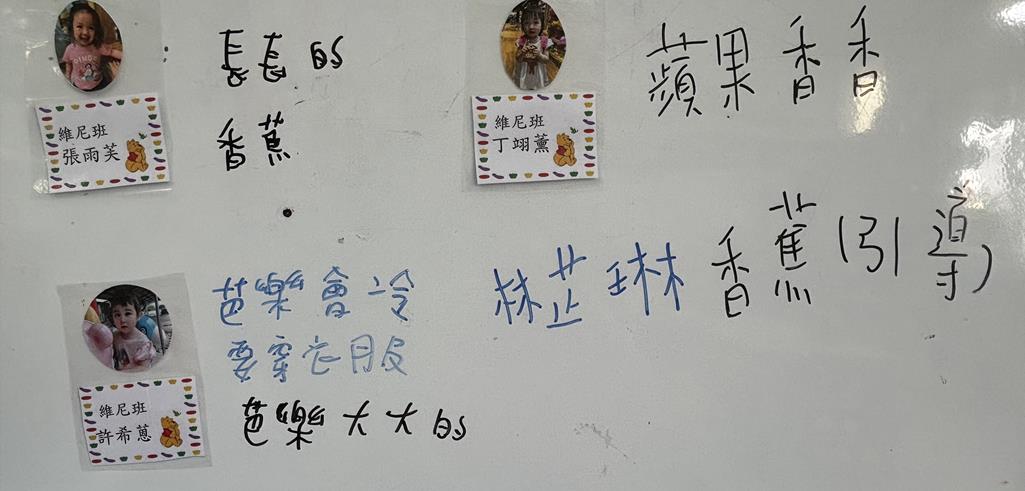 長長的
香蕉
維尼班
張雨芙
蘋果香香
維尼班
丁翊薰
芭樂會冷
要穿衣服
芭樂大大的
維尼班
許希蕙
林芷琳 香蕉(引導)